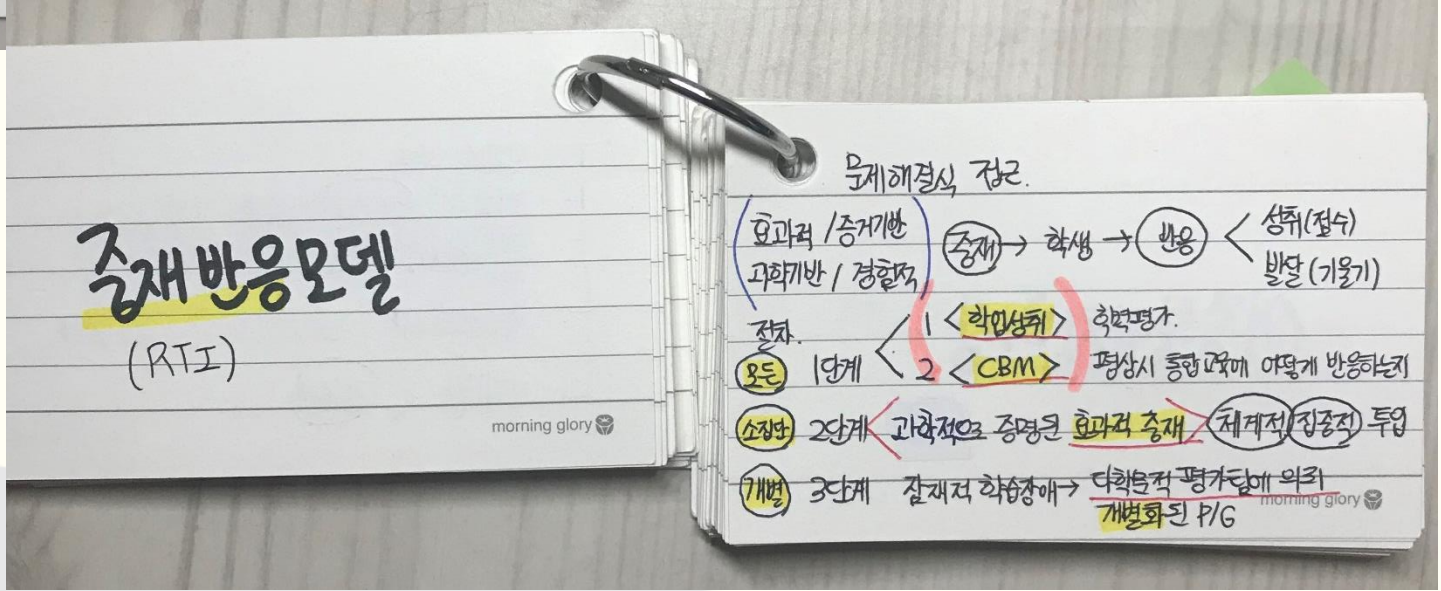 중재반응모델
(RTI)
morning glory
문제해결식 접근.
효과적 / 증거기반
과학기반 / 경험적
중재 → 학생 → 반응 < 성취(점수)
발달 (기울기)
절차.
모든 1단계 < 1 <학업성취> 학력평가.
2 <CBM> 평상시 통합교육에 어떻게 반응하는지
소집단 2단계 < 과학적으로 증명된 효과적 중재 > 체계적 집중적 투입
개별 3단계 잠재적 학습장애 → 다학문적 평가팀에 의뢰
개별화된 P/G
morning glory